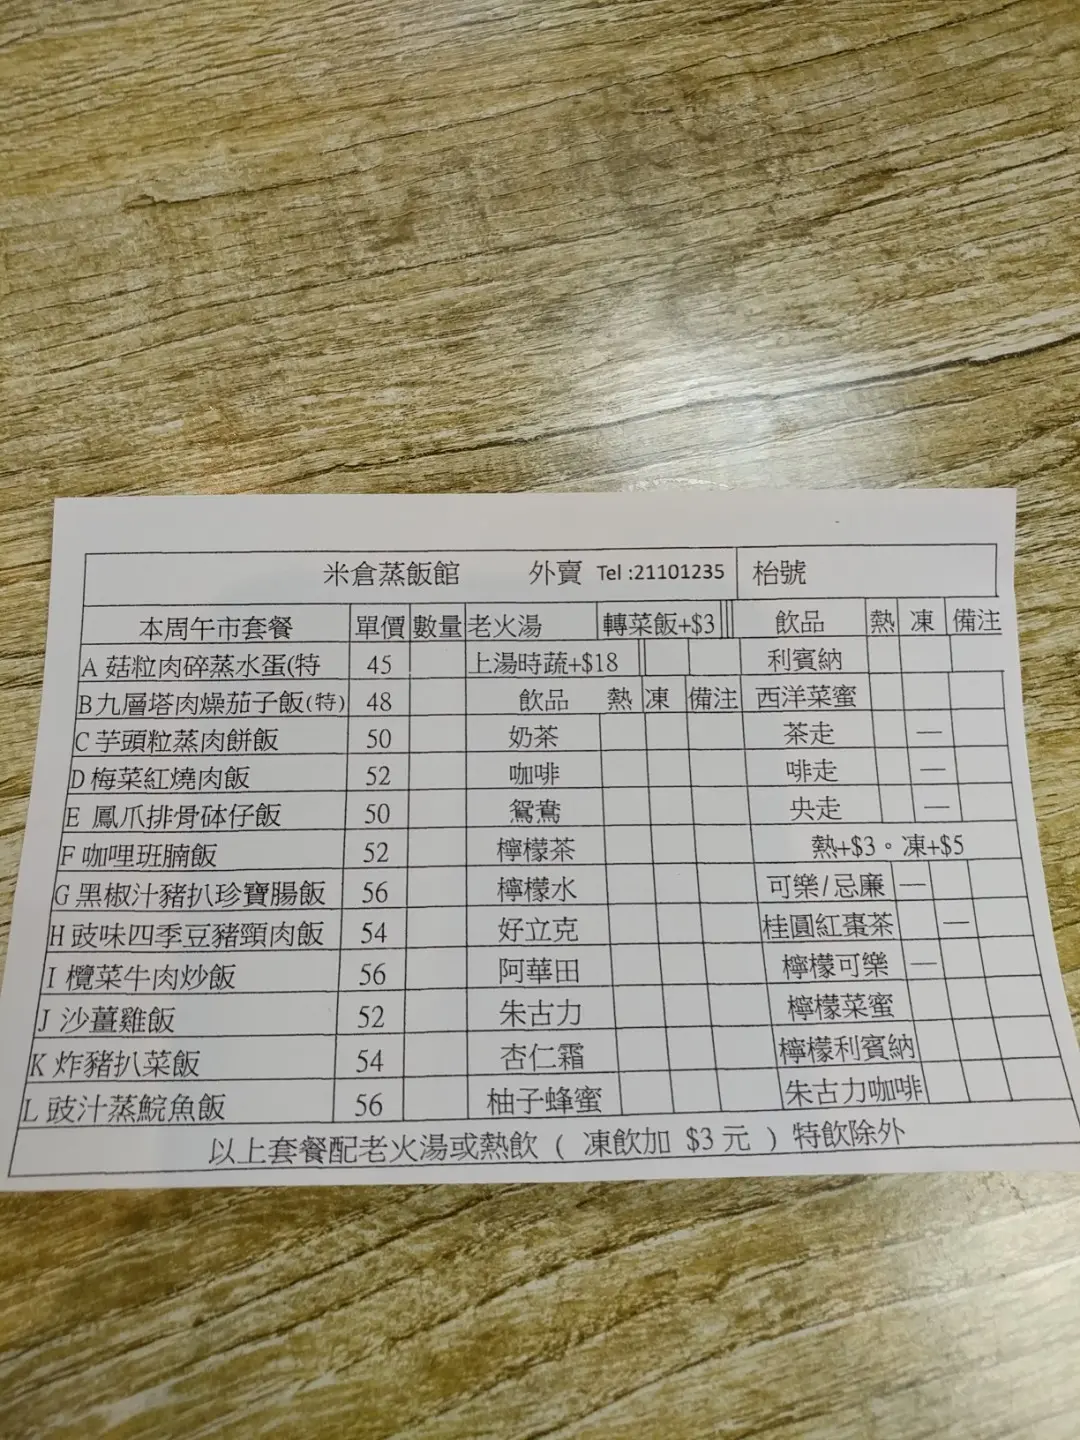 米倉蒸飯館 外賣 Tel :21101235 枱號
本周午市套餐 單價 數量 老火湯 轉菜飯+$3 飲品 熱 凍 備注
A 菇粒肉碎蒸水蛋(特 45 上湯時蔬+$18 利賓納
B九層塔肉燥茄子飯(特) 48 飲品 熱 凍 備注 西洋菜蜜
C 芋頭粒蒸肉餅飯 50 奶茶 茶走 —
D 梅菜紅燒肉飯 52 咖啡 啡走 —
E 鳳爪排骨砵仔飯 50 鴛鴦 央走 —
F 咖哩班腩飯 52 檸檬茶 熱+$3。凍+$5
G 黑椒汁豬扒珍寶腸飯 56 檸檬水 可樂/忌廉 —
H 豉味四季豆豬頸肉飯 54 好立克 桂圓紅棗茶 —
I 欖菜牛肉炒飯 56 阿華田 檸檬可樂 —
J 沙薑雞飯 52 朱古力 檸檬菜蜜
K 炸豬扒菜飯 54 杏仁霜 檸檬利賓納
L 豉汁蒸鯇魚飯 56 柚子蜂蜜 朱古力咖啡
以上套餐配老火湯或熱飲 ( 凍飲加 $3 元 ) 特飲除外